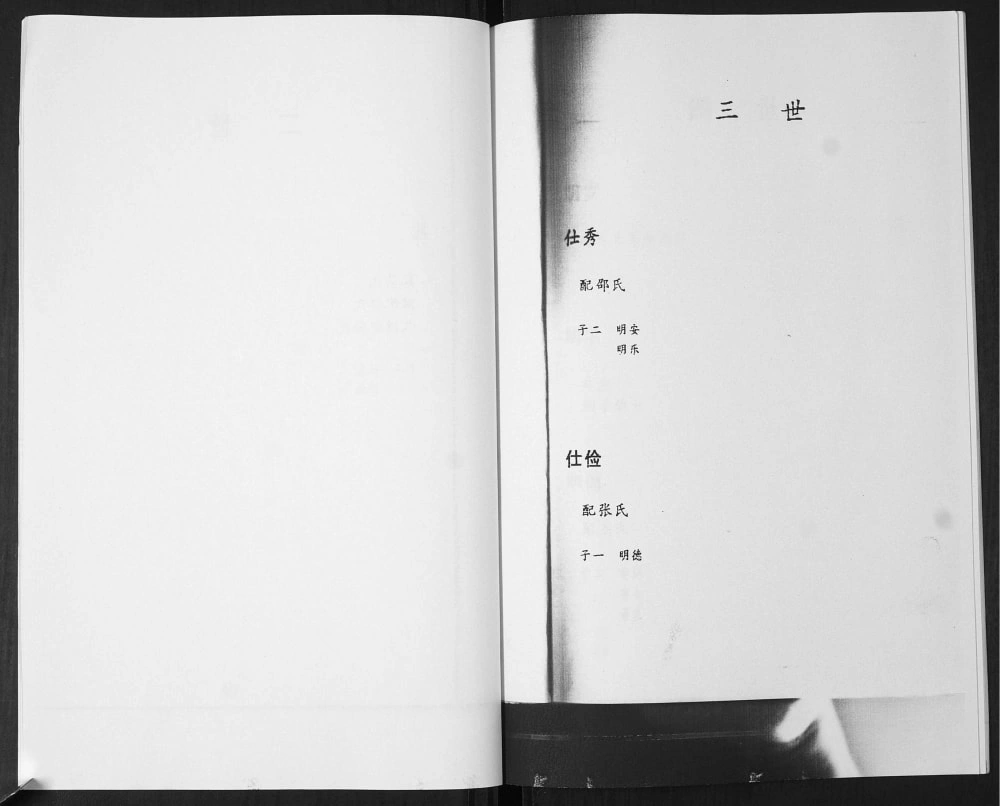 三 世
仕秀
配邵氏
子二 明安
明乐
仕俭
配张氏
子一 明德